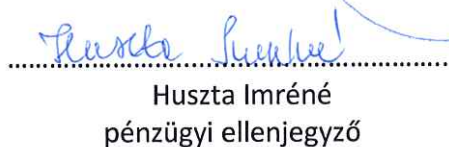 Huszta Imréné
Huszta Imréné
pénzügyi ellenjegyző